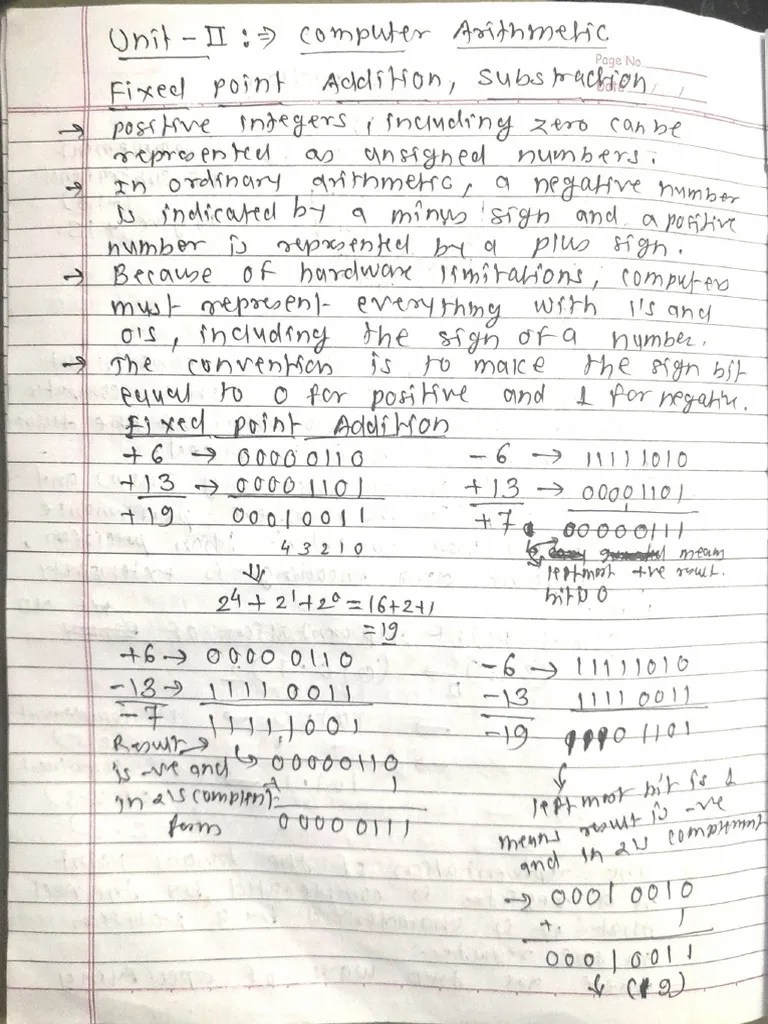 Unit-II :⇒ Computer Arithmetic
Page No
Date
Fixed point Addition, Substraction
→ positive integers, including zero can be
represented as unsigned numbers.
→ In ordinary arithmetic, a negative number
is indicated by a minus sign and a positive
number is represented by a plus sign.
→ Because of hardware limitations, computers
must represent everything with 1's and
0's, including the sign of a number.
→ The convention is to make the sign bit
equal to 0 for positive and 1 for negative.
Fixed point Addition
+6 → 00000110
+13 → 00001101
+19 00010011
4 3 2 1 0
⇓
2^4 + 2^1 + 2^0 = 16+2+1
= 19
-6 → 11111010
+13 → 00001101
+7 00000111
mean
leftmost +ve result.
bit is 0
+6 → 00000110
-13 → 11110011
-7 11111001
Result →
is -ve and ↳ 00000110
in 2's complent + 1
form 00000111
-6 → 11111010
-13 11110011
-19 11101101
↓
leftmost bit is 1
means result is -ve
and in 2's
→ 00010010
+ 1
00010011
↓ (19)